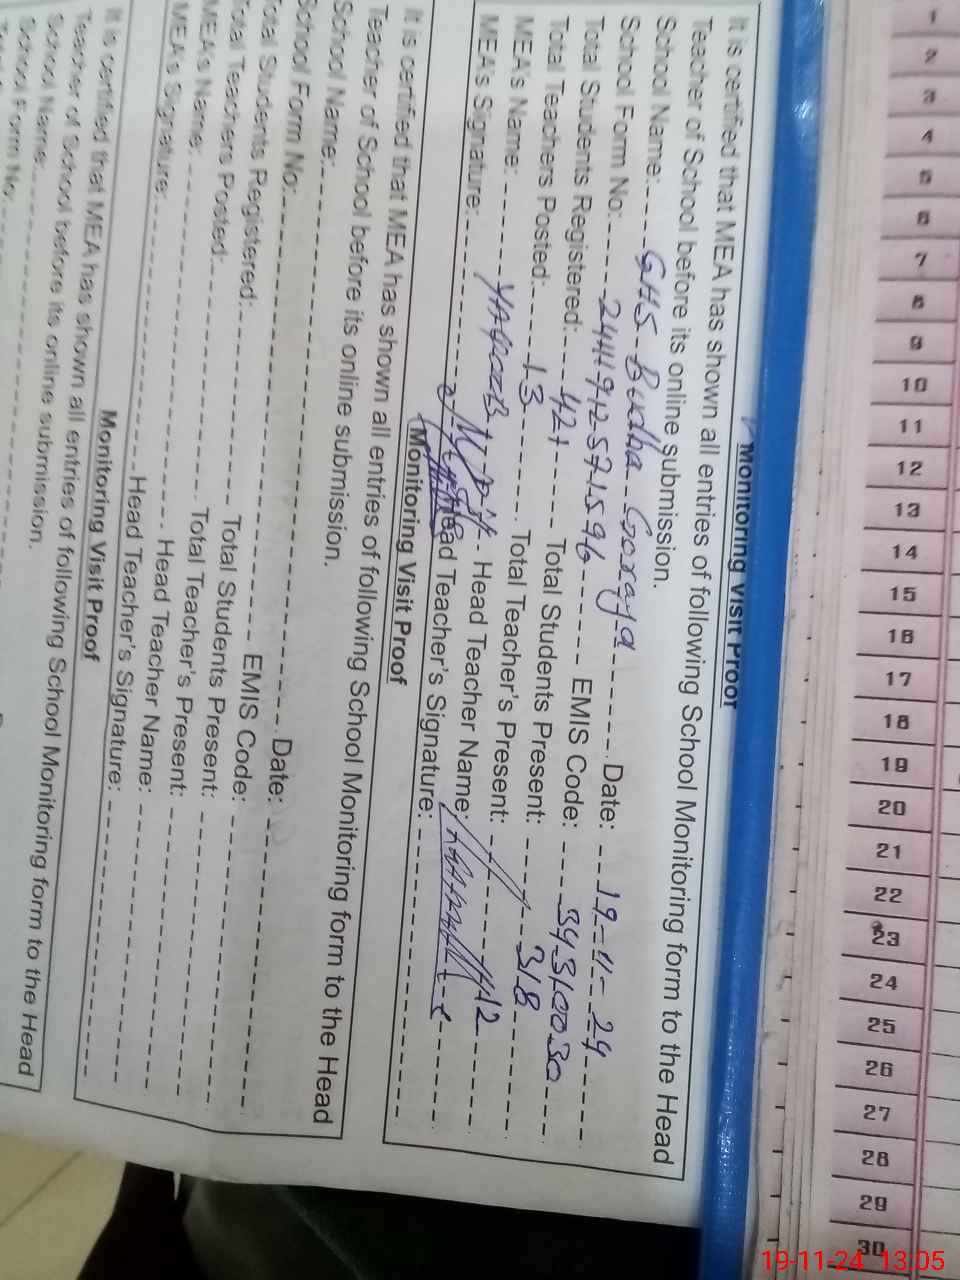 Monitoring Visit Proof
It is certified that MEA has shown all entries of following School Monitoring form to the Head
Teacher of School before its online submission.
School Name: GHS Budha Goraya Date: 19-11-24
School Form No: EMIS Code: 34310030
Total Students Registered: 421 Total Students Present: 318
Total Teachers Posted: 13 Total Teacher's Present: 12
MEA's Name: Head Teacher Name:
MEA's Signature: Head Teacher's Signature:
Monitoring Visit Proof
It is certified that MEA has shown all entries of following School Monitoring form to the Head
Teacher of School before its online submission.
School Name: Date:
School Form No: EMIS Code:
Total Students Registered: Total Students Present:
Total Teachers Posted: Total Teacher's Present:
MEA's Name: Head Teacher Name:
MEA's Signature: Head Teacher's Signature:
Monitoring Visit Proof
It is certified that MEA has shown all entries of following School Monitoring form to the Head
Teacher of School before its online submission.
School Name:
School Form No:
1
2
3
4
5
6
7
8
9
10
11
12
13
14
15
16
17
18
19
20
21
22
23
24
25
26
27
28
29
30
19-11-24 13:05